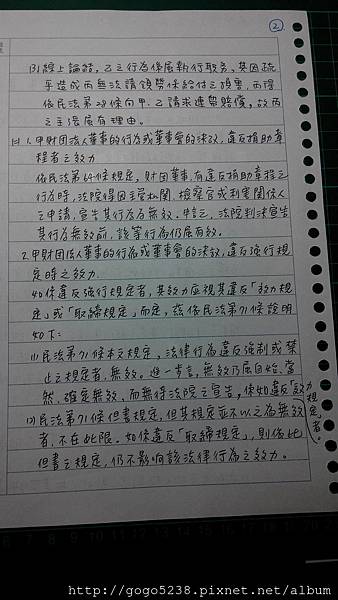 2
(3)綜上論結,乙之行為係屬執行職務、其因疏
乎造成丙無法請領勞保給付之損害,丙得
依民法第28條向甲、乙請求連帶賠償,故丙
之主張為有理由。
1.甲財團法人董事的行為或董事會的決議,違反捐助章
程者之效力
依民法第64條規定,財團董事,有違反捐助章程之
行為時,法院得因主管機關、檢察官或利害關係人
之申請,宣告其行為為無效。申言之,法院判決宣告
其行為無效前,該等行為仍屬有效。
2.甲財團法人董事的行為或董事會的決議,違反強行規
定時之效力
如係違反強行規定者,其效力應視其違反「效力規
定」或「取締規定」而定,茲依民法第71條說明
如下:
(1)民法第71條本文規定,法律行為違反強制或禁
止之規定者,無效。進一步言,無效乃屬自始、當
然、確定無效,而無待法院之宣告,係如違反「效力規定」者。
(2)民法第71條但書規定,但其規定並不以之為無效
者,不在此限。如係違反「取締規定」,則依此
但書之規定,仍不影響該法律行為之效力。
http://gogo5238.pixnet.net/album